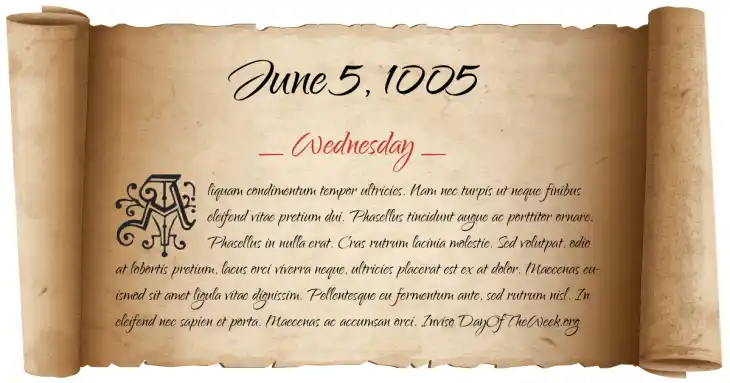 June 5, 1005
— Wednesday —
Aliquam condimentum tempor ultricies. Nam nec turpis ut neque finibus
eleifend vitae pretium dui. Phasellus tincidunt augue ac porttitor ornare.
Phasellus in nulla erat. Cras rutrum lacinia molestie. Sed volutpat, odio
at lobortis pretium, lacus orci viverra neque, ultricies placerat est ex at dolor. Maecenas eu-
ismod sit amet ligula vitae dignissim. Pellentesque eu fermentum ante, sed rutrum nisl. In
eleifend nec sapien et porta. Maecenas ac accumsan orci. Invise DayOfTheWeek.org